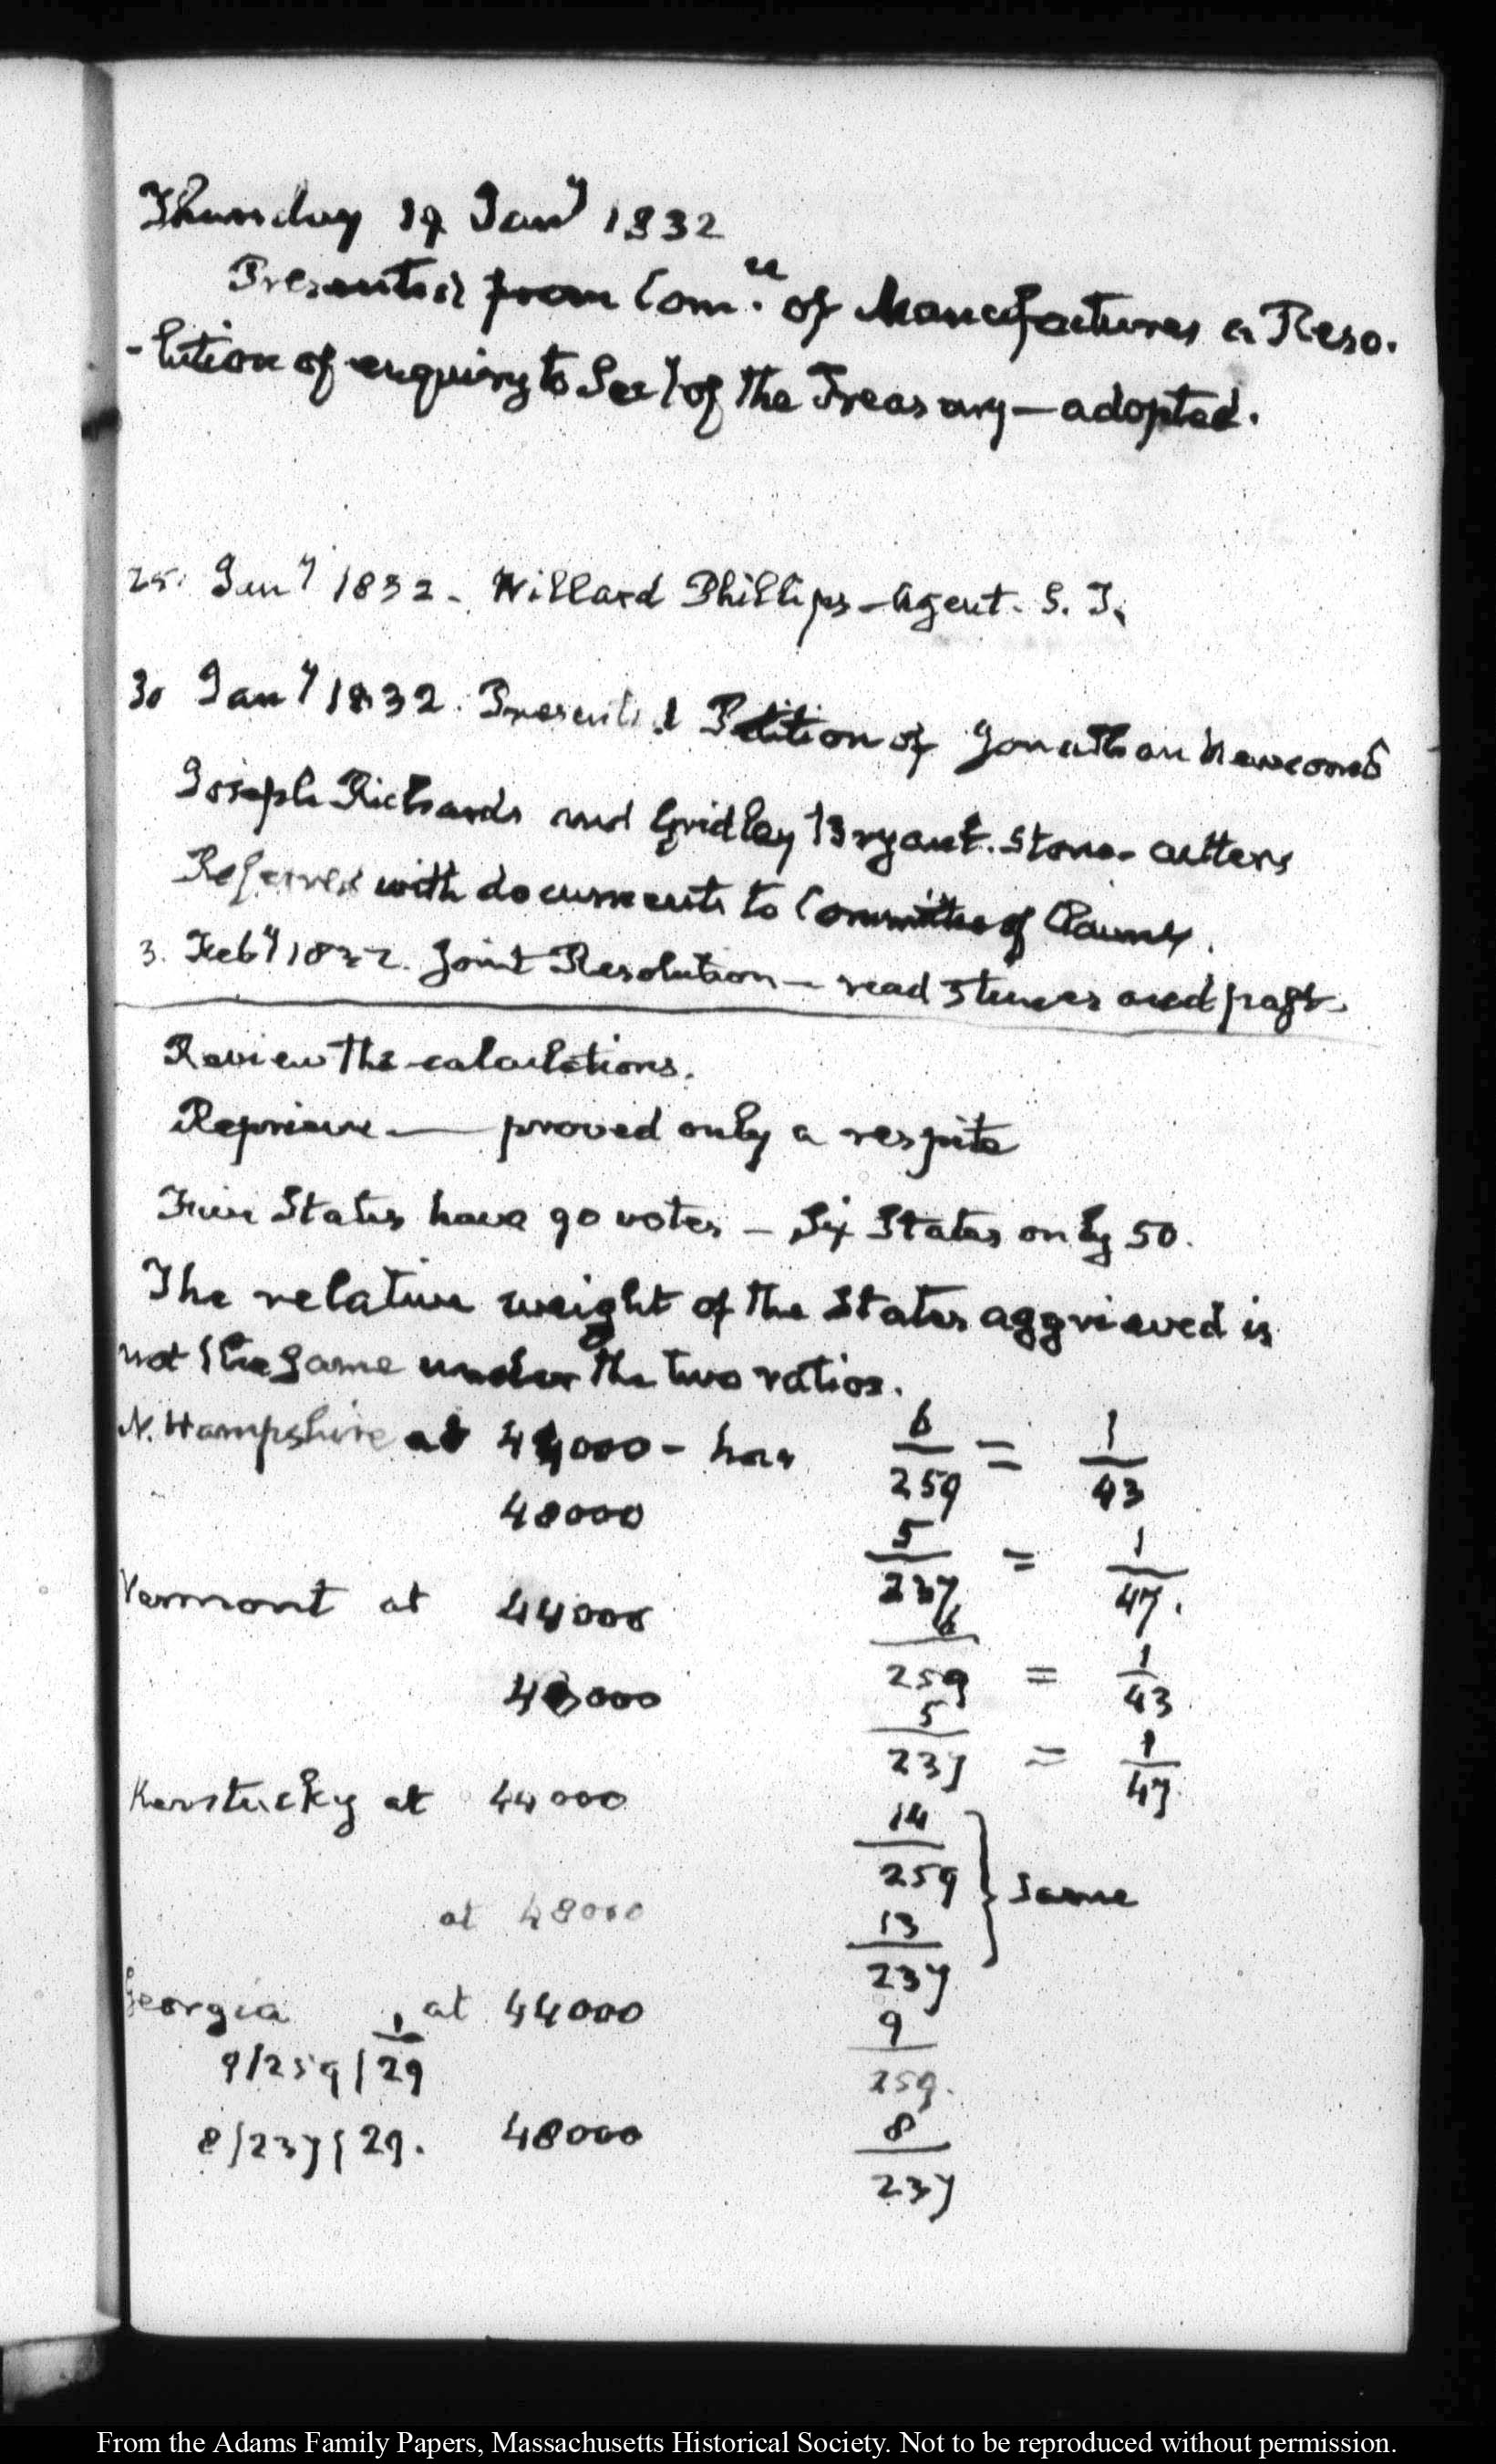 Thursday 19 Jan.y 1832
Presented from Com.ee of Manufactures a Reso-
-lution of enquiry to Sec.y of the Treasury — adopted.
25. Jan.y 1832. Willard Phillips — Agent. S. I.
30 Jan.y 1832. Presented Petition of Jonathan Newcomb
Joseph Richards and Gridley Bryant. Stone-cutters
Referred with documents to Committee of Claims.
3. Feb.y 1832. Joint Resolution — read 3 times and past.
Review the calculations.
Reprieve — proved only a respite
Five States have 90 votes — Six States only 50.
The relative weight of the States aggrieved is
not the same under the two ratios.
N. Hampshire at 44000 - has 6/259 = 1/43
48000 5/237 = 1/47.
Vermont at 44000 6/259 = 1/43
48000 5/237 = 1/47.
Kentucky at 44000 14/259 } same
at 48000 13/237
Georgia at 44000 9/259.
9/259/ 1/29
8/237/29. 48000 8/237
From the Adams Family Papers, Massachusetts Historical Society. Not to be reproduced without permission.